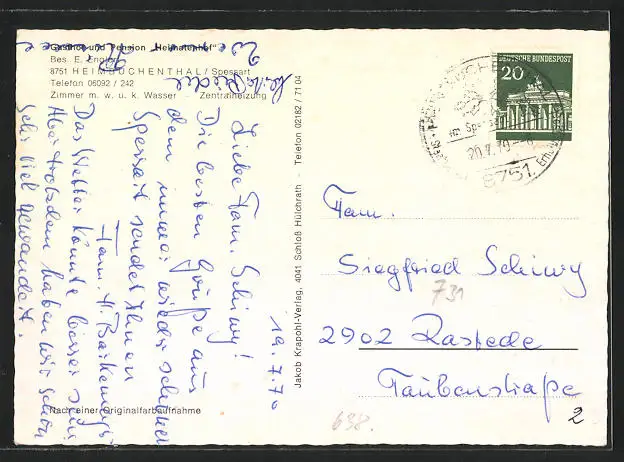 Gasthof und Pension „Heimatenhof“
Bes. E. Englert
8751 HEIMBUCHENTHAL / Spessart
Telefon 06092 / 242
Zimmer m. w. u. k. Wasser Zentralheizung
19.7.70
Liebe Fam. Schiwy!
Die besten Grüße aus
dem immer wieder schönen
Spessart sendet Ihnen
Fam. H.
Das Wetter könnte besser sein
Aber trotzdem haben wir schon
sehr viel gewandert.
Nach einer Originalfarbaufnahme
Jakob Krapohl-Verlag, 4041 Schloß Hülchrath - Telefon 02182 / 71 04
DEUTSCHE BUNDESPOST
20
im Spessart
20.7.70
8751
Fam.
Siegfried Schiwy
731
2902 Rastede
Taubenstraße
2
638.